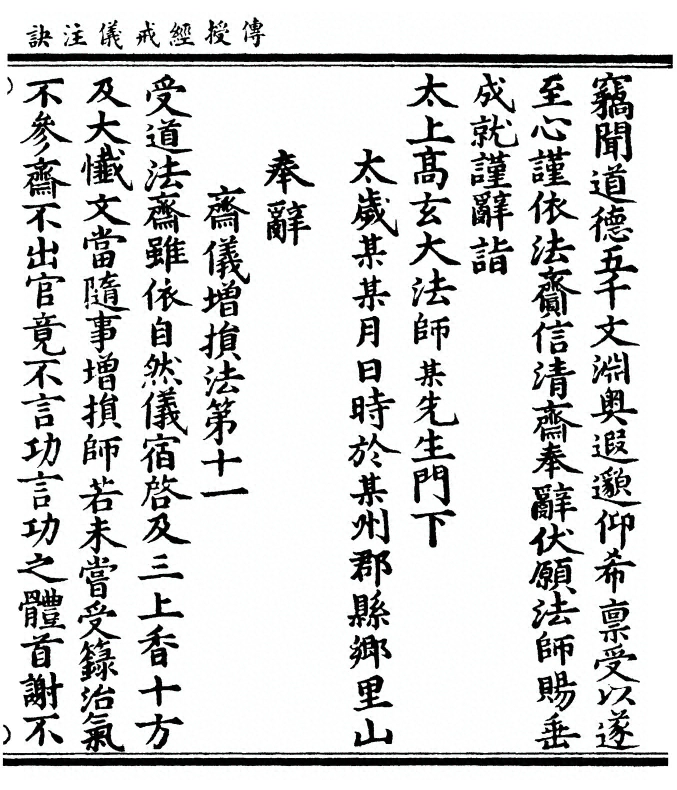 傳授經戒儀注訣
竊聞道德五千文淵奥遐邈仰希禀受以遂
至心謹依法齎信清齋奉辭伏願法師賜垂
成就謹辭詣
太上髙玄大法師某先生門下
太歲某某月日時於某州郡縣鄉里山
奉辭
齋儀增損法第十一
受道法齋雖依自然儀宿啓及三上香十方
及大懺文當隨事增損師若未嘗受籙治氣
不參齋不出官竟不言功言功之體首謝不